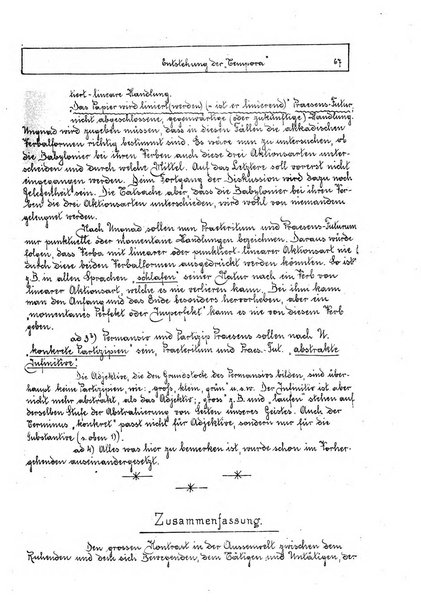 Entstehung der "Tempora" 67
tiert-lineare Handlung.
"Das Papier wird liniert (werden) (= ist er linierend)" Praesens-Futur,
nicht abgeschlossene, gegenwärtige (oder zukünftige) Handlung.
Ungnad wird zugeben müssen, dass in diesen Fällen die akkadischen
Verbalformen richtig bestimmt sind. Es wäre nun zu untersuchen, ob
die Babylonier bei ihren Verben auch diese drei Aktionsarten unter-
scheiden und durch welche Mittel. Auf das Letztere soll vorerst nicht
eingegangen werden. Beim Fortgang der Diskussion wird dazu noch
Gelegenheit sein. Die Tatsache aber, dass die Babylonier bei ihren Ver-
ben die drei Aktionsarten unterschieden, wird wohl von niemandem
geleugnet werden.
Nach Ungnad sollen nun Praeteritum und Praesens-Futurum
nur punktuelle oder momentane Handlungen bezeichnen. Daraus würde
folgen, dass Verba mit linearer oder punktiert-linearer Aktionsart nie
durch diese beiden Verbalformen ausgedrückt werden könnten. So ist
z.B. in allen Sprachen "schlafen" seiner Natur nach ein Verb von
linearer Aktionsart, welche es nie verlieren kann. Bei ihm kann
man den Anfang und das Ende besonders hervorheben, aber ein
"momentanes Perfekt oder Imperfekt" kann es nie von diesem Verb
geben.
ad 3) Permansiv und Partizip Praesens sollen nach U.
"konkrete Partizipien" sein, Praeteritum und Praes.-Fut. "abstrakte
Infinitive".
Die Adjektive, die den Grundstock des Permansivs bilden, sind über-
haupt keine Partizipien, wie: "groß, klein, grün" u.s.w. Der Infinitiv ist aber
nicht mehr abstrakt, als das Adjektiv; "gross" z.B. und "laufen" stehen auf
derselben Stufe der Abstrahierung von Seiten unseres Geistes. Auch der
Terminus "konkret" passt nicht für Adjektive, sondern nur für die
Substantive (s. oben 1)).
ad 4) Alles was hier zu bemerken ist, wurde schon im Vorher-
gehenden auseinandergesetzt.
Zusammenfassung.
Den grossen Kontrast in der Aussenwelt zwischen dem
Ruhenden und dem sich Bewegenden, dem Tätigen und Untätigen, der